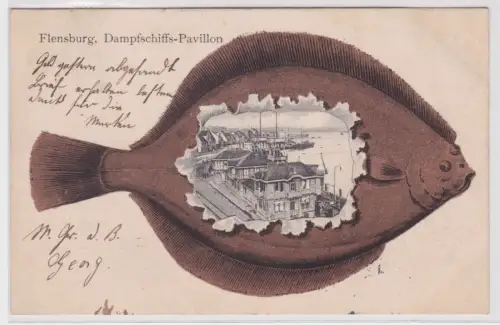 Flensburg, Dampfschiffs-Pavillon
Geld gestern abgesandt
Brief erhalten besten
Dank für die
Marken
M. Gr. a. B.
Georg.